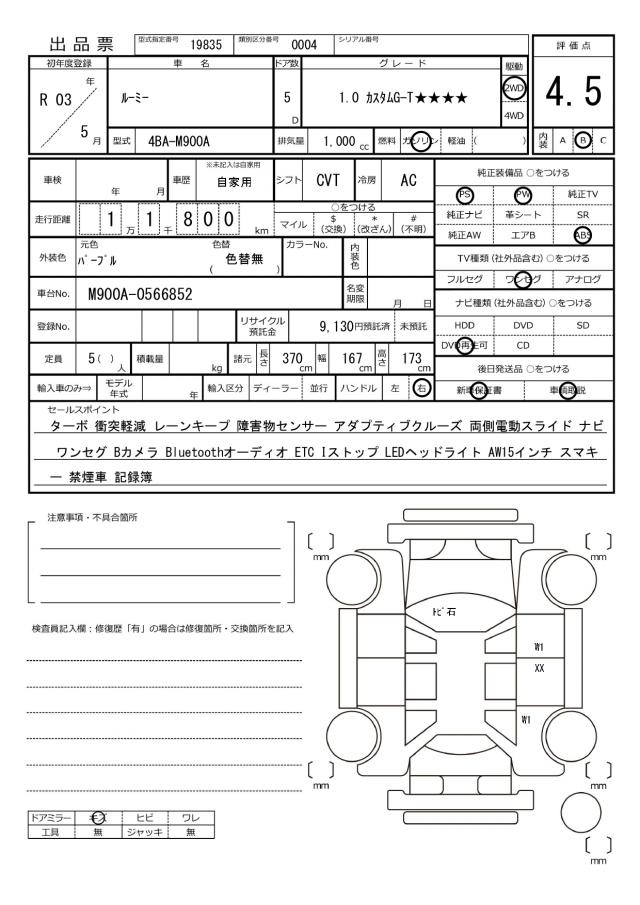 出品票
型式指定番号 19835 類別区分番号 0004 シリアル番号
評価点
4.5
内装 A B C
初年度登録 車名 ドア数 グレード 駆動
R 03 年 5 月
ルーミー
5 D
1.0 カスタムG-T★★★★
2WD
4WD
型式 4BA-M900A 排気量 1,000 cc 燃料 ガソリン 軽油 ( )
車検 年 月 車歴 ※未記入は自家用 自家用 シフト CVT 冷房 AC
走行距離 1 万 1 千 8 0 0 km
○をつける
マイル $(交換) *(改ざん) #(不明)
外装色 元色 パープル 色替 ( 色替無 ) カラーNo. 内装色
車台No. M900A-0566852 名変期限 月 日
登録No. リサイクル預託金 9,130円預託済 未預託
定員 5( ) 人 積載量 kg 諸元 長さ 370 cm 幅 167 cm 高さ 173 cm
輸入車のみ⇒ モデル年式 年 輸入区分 ディーラー 並行 ハンドル 左 右
純正装備品 ○をつける
PS PW 純正TV
純正ナビ 革シート SR
純正AW エアB ABS
TV種類 (社外品含む) ○をつける
フルセグ ワンセグ アナログ
ナビ種類 (社外品含む) ○をつける
HDD DVD SD
DVD再生可 CD
後日発送品 ○をつける
新車保証書 車輌取説
セールスポイント
ターボ 衝突軽減 レーンキープ 障害物センサー アダプティブクルーズ 両側電動スライド ナビ
ワンセグ Bカメラ Bluetoothオーディオ ETC Iストップ LEDヘッドライト AW15インチ スマキ
ー 禁煙車 記録簿
注意事項・不具合箇所
検査員記入欄：修復歴「有」の場合は修復箇所・交換箇所を記入
ドアミラー キズ ヒビ ワレ
工具 無 ジャッキ 無
mm
mm
トビ石
W1
XX
W1
mm
mm
mm